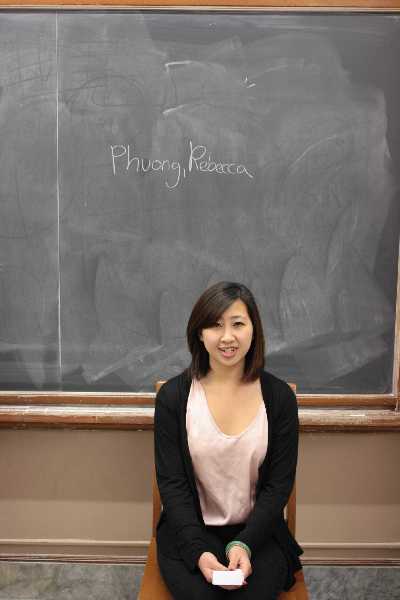 Phuong, Rebecca